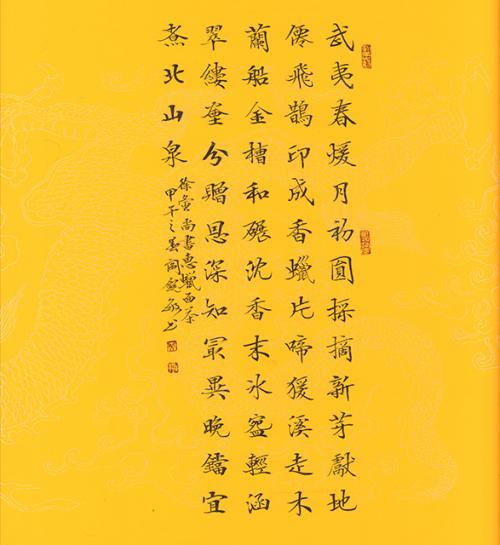 武夷春煖月初圓採摘新芽獻地
僊飛鵲印成香蠟片啼猨溪走木
蘭船金槽和碾沈香末冰盌輕涵
翠縷分贈恩深知冣異晚鐺宜
煮北山泉
徐夤尚書惠蠟面茶
甲午之敏書